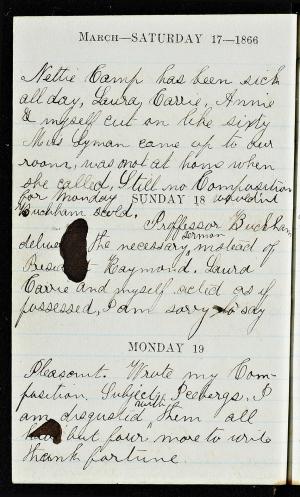 March—SATURDAY 17—1866
Nettie Camp has been sick
all day, Laura, Carrie, Annie
& myself cut on like sixty
Miss Lyman came up to our
room, was not at home when
she called, Still no Composition
for Monday SUNDAY 18 wouldn't
Buckham scold.
Proffessor Buckham
the necessary sermon instead of
Raymond, Laura
Carrie and myself acted as if
possessed, I am sorry to say
MONDAY 19
Pleasant. Wrote my Com-
position. Subject, Icebergs. I
am disgusted with them all
but four more to write
thank fortune.